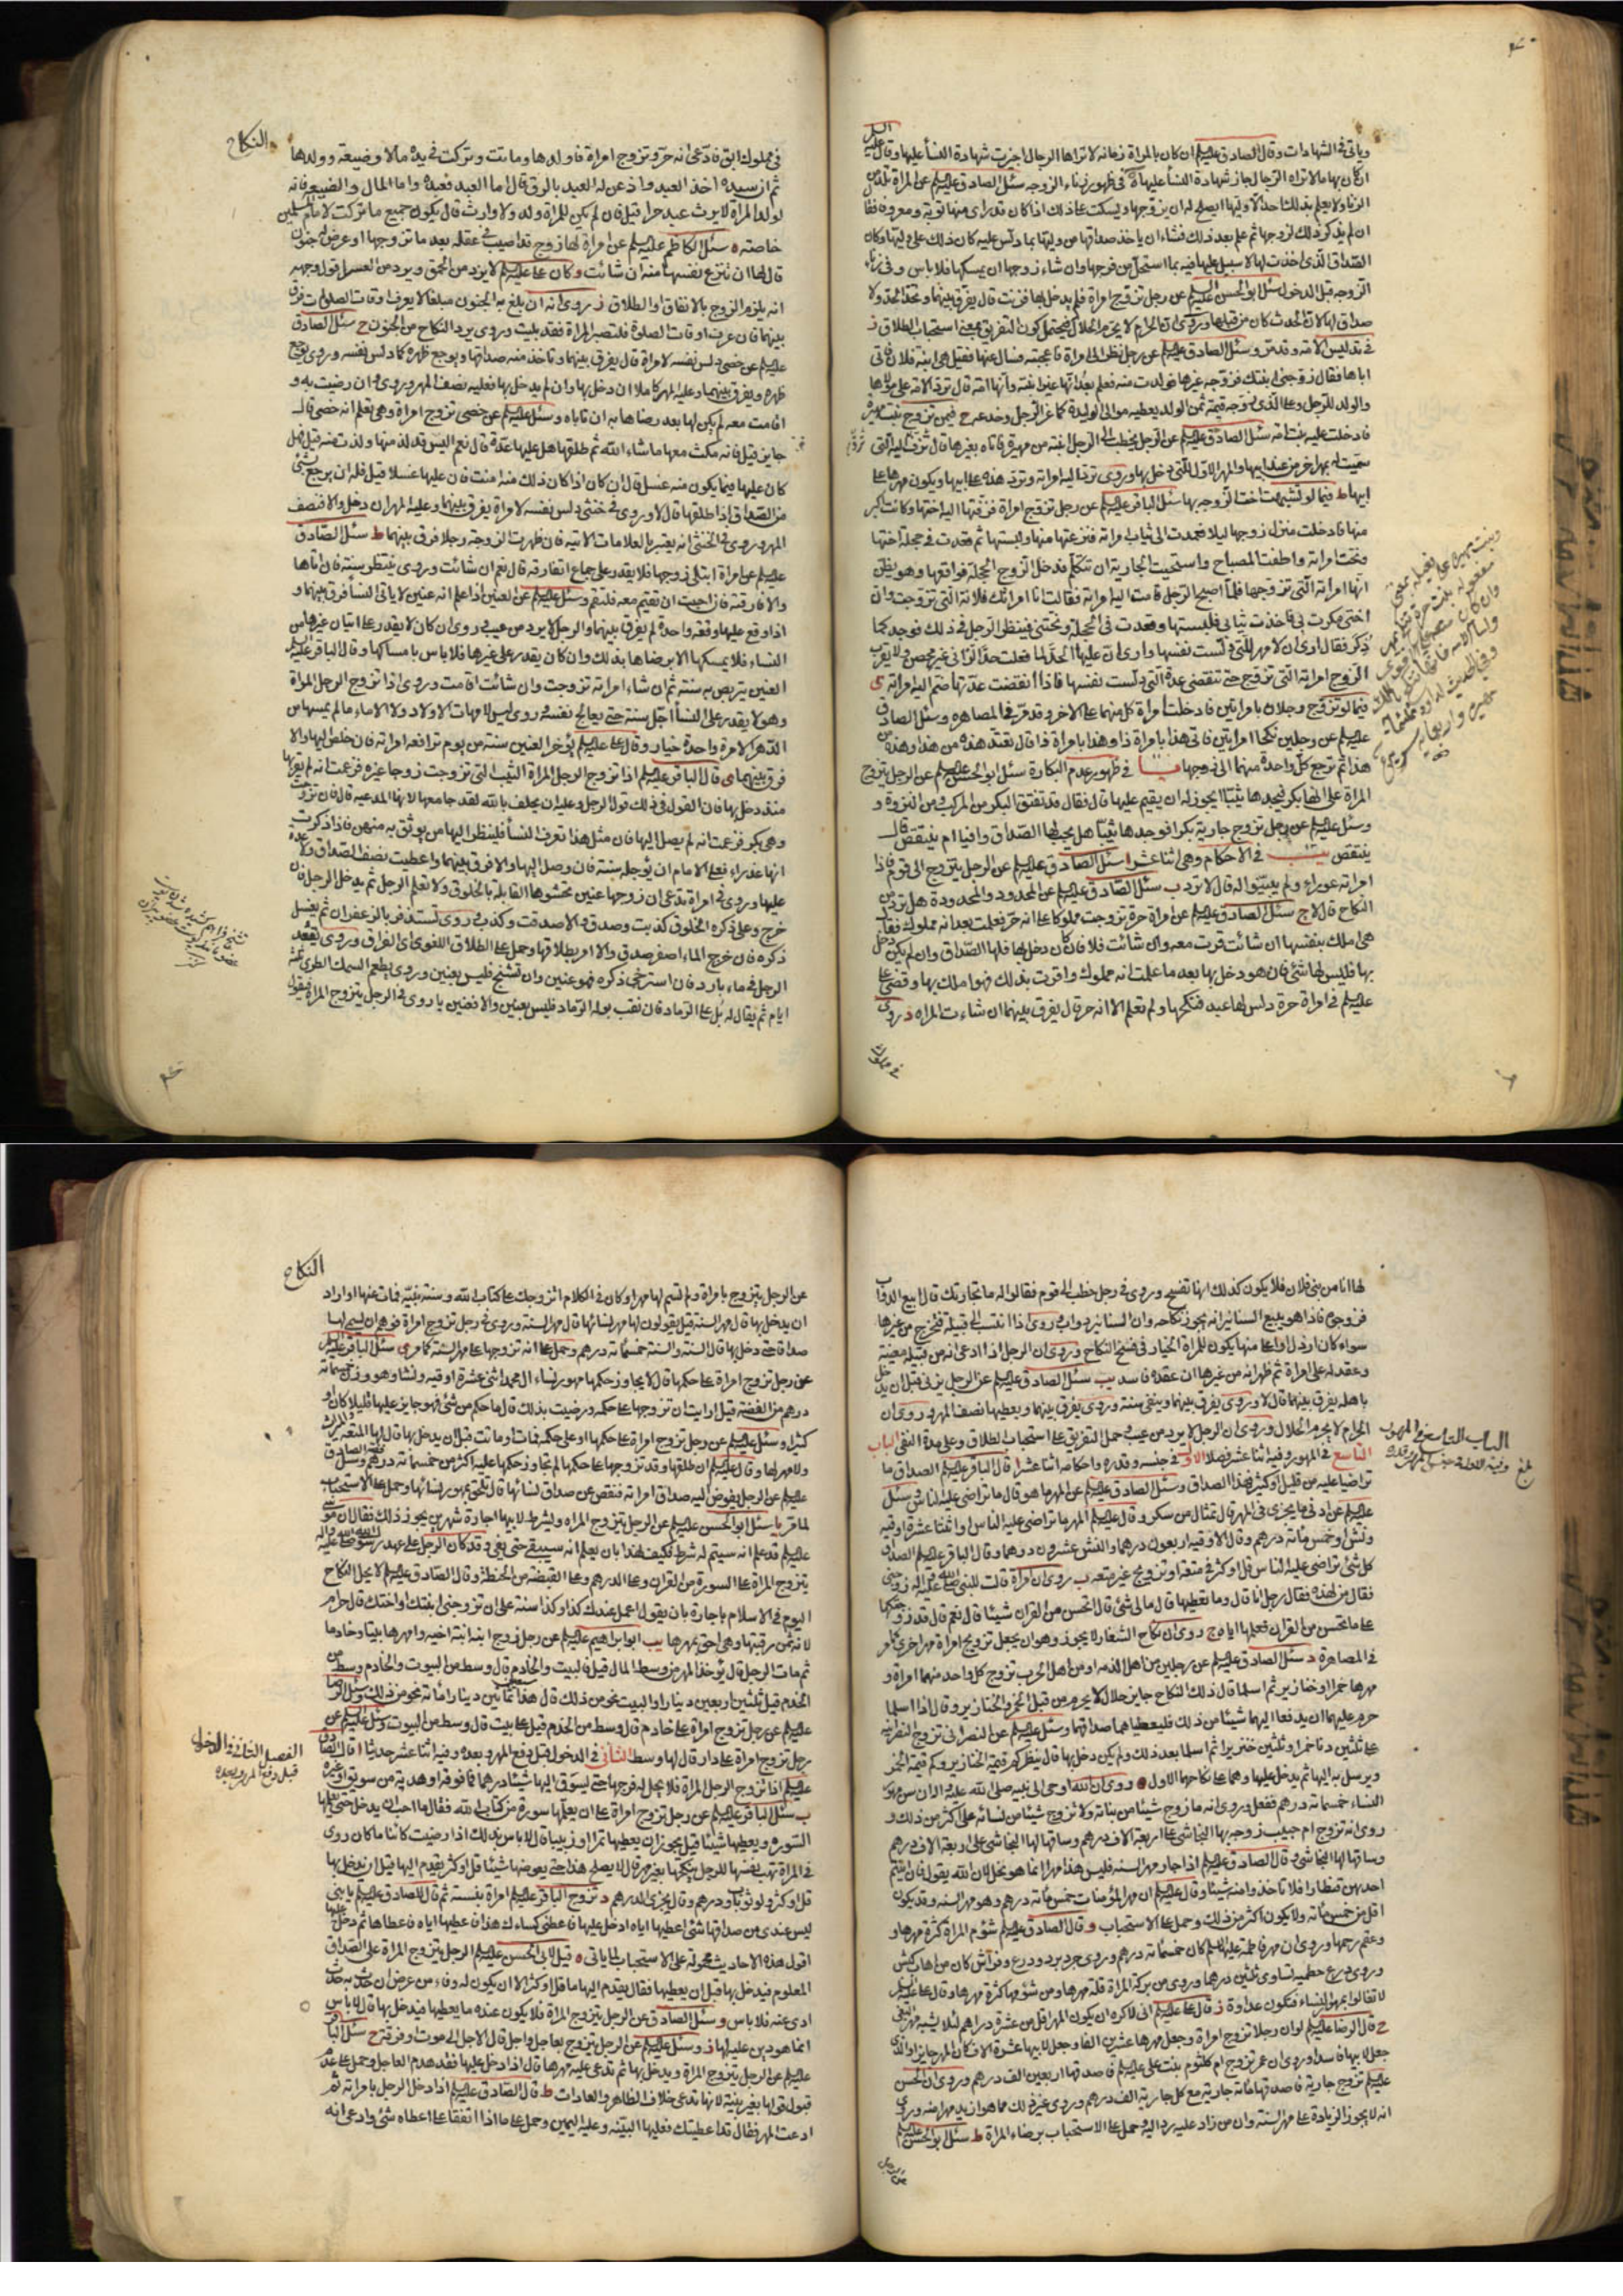 وياتى فى الشهادات وقال الصادق عليه السلم ان كان بالمراة زمانه لا تراها الرجال اجزيت شهادة النسأ عليها وقال عليه السلم
ان كان بها مالا تراه الرجال جاز شهادة النسأ عليها ة فى ظهور زناء الزوجه سئل الصادق عليه السلم عن المراة تلد من
الزنا ولا يعلم بذلك احد الا وليها ايصلح له ان يزوجها ويسكت على ذلك اذا كان قد راى منها توبة ومعروفا فقا
ان لم يذكر ذلك لزوجها ثم علم بعد ذلك فشاء ان ياخذ صداقها من وليها بما دلس عليه كان ذلك على وليها وكان
الصداق الذى اخذت لها لا سبيل عليها فيه بما استحل من فرجها وان شاء زوجها ان يمسكها فلا باس و فى زناء
الزوجه قبل الدخول سئل ابو الحسن عليه السلم عن رجل تزوج امراة فلم يدخل بها فزنت قال يفرق بينهما وتحد الحد ولا
صداق لها لان الحدث كان من قبلها وروى ان الحرام لا يحرم الحلال فيحتمل كون التفريق بمعنى استحباب الطلاق ز
فى تدليس الامه وقد مر وسئل الصادق عليه السلم عن رجل نظر الى امراة فاعجبته فسال عنها فقيل هى ابنة فلان فاتى
اباها فقال زوجنى ابنتك فزوجه غيرها فولدت منه فعلم بعد انها غير ابنته وانها امته قال ترد الامة على مواليها
والولد للرجل وعلى الذى زوجه قيمة ثمن الولد يعطيه موالى الوليدة كما غر الرجل وخدعه ح فيمن تزوج بنت مهيرة
فادخلت عليه بنت امة سئل الصادق عليه السلم عن الرجل يخطب الى الرجل ابنته من مهيرة فاتاه بغيرها قال تزف اليه التى
سميت له بمهر اخر من عند ابيها والمهر الاول للتى دخل بها وروى ترد اليه امراته وترد هذه على ابيها ويكون مهرها على
ابيها ط فيما لو تشبهت اخت الزوجه بها سئل الباقر عليه السلم عن رجل تزوج امراة فزفتها اليه اختها وكانت اكبر
منها فادخلت منزل زوجها ليلا فعمدت الى ثياب امراته فنزعتها منها ولبستها ثم قعدت فى حجلة اختها
ونحت امراته واطفت المصباح واستحيت الجارية ان تتكلم فدخل الزوج الحجلة فواقعها وهو يظن
انها امراته التى تزوجها فلما اصبح الرجل قامت اليه امراته فقالت انا امراتك فلانة التى تزوجت وان
اختى مكرت بى فاخذت ثيابى فلبستها وقعدت فى الحجلة ونحتنى فينظر الرجل فى ذلك فوجد كما
ذكر فقال ارى ان لا مهر للتى دلست نفسها وارى ان عليها الحد لما فعلت حد الزانى غير محصن ولا يقرب
الزوج امراته التى تزوج حتى تنقضى عدة التى دلست نفسها فاذا انقضت عدتها ضم اليه امراته ى
فيما لو تزوج رجلان بامراتين فادخلت امراة كل منهما على الاخر وقد مر فى المصاهره وسئل الصادق
عليه السلم عن رجلين نكحا امراتين فاتى هذا بامراة ذا وهذا بامراة ذا قال تعتد هذه من هذا وهذه من
هذا ثم ترجع كل واحدة منهما الى زوجها يا فى ظهور عدم البكارة سئل ابو الحسن عليه السلم عن الرجل يتزوج
المراة على انها بكر فيجدها ثيبا ايجوز له ان يقيم عليها قال فقال قد تفتق البكر من المركب ومن النزوة و
وسئل عليه السلم عن رجل تزوج جارية بكرا فوجدها ثيبا هل يجب لها الصداق وافيا ام ينتقص قال
ينتقص يب فى الاحكام وهى اثنا عشر ا سئل الصادق عليه السلم عن الرجل يتزوج الى قوم فاذا
امراته عوراء ولم يبينوا له قال لا ترد ب سئل الصادق عليه السلم عن المحدود والمحدودة هل ترد من
النكاح قال لا ج سئل الصادق عليه السلم عن امراة حرة تزوجت مملوكا على انه حر فعلمت بعد انه مملوك فقال
هى املك بنفسها ان شائت قرت معه وان شائت فلا فان كان دخل بها فلها الصداق وان لم يكن دخل
بها فليس لها شئ فان هو دخل بها بعد ما علمت انه مملوك واقرت بذلك فهو املك بها وقضى على
عليه السلم فى امراة حرة دلس لها عبد فنكحها ولم تعلم الا انه حر قال يفرق بينهما ان شاءت المراه د روى
فى مملوك
النكاح
فى مملوك ابق فادعى انه حر وتزوج امراة فاولدها وماتت وتركت فى يده مالا وضيعة وولدها
ثم ان سيده اخذ العبد واذعن له العبد بالرق قال اما العبد فعبده واما المال والضيعه فانه
لولد المراة لا يرث عبد حرا قيل فان لم يكن للمراة ولد ولا وارث قال يكون جميع ما تركت لامام المسلمين
خاصته ه سئل الكاظم عليه السلم عن امراة لها زوج قد اصيب فى عقله بعد ما تزوجها او عرض له جنون
قال لها ان تنزع نفسها منه ان شائت و كان على عليه السلم لا يرد من الحمق ويرد من العسر
انه يلزم الزوج بالانفاق او الطلاق ز روى انه ان بلغ به الجنون مبلغا لا يعرف اوقات الصلوات فرق
بينهما فان عرف اوقات الصلوة فلتصبر المراة فقد بليت وروى يرد النكاح من الجنون ح سئل الصادق
عليه السلم عن خصى دلس نفسه لامراة قال يفرق بينهما وتاخذ منه صداقها ويوجع ظهره كما دلس نفسه وروى يوجع
ظهره ويفرق بينهما وعليه المهر كاملا ان دخل بها وان لم يدخل بها فعليه نصف المهر وروى وان رضيت به و
اقامت معه لم يكن لها بعد رضاها به ان تاباه وسئل عليه السلم عن خصى تزوج امراة وهى تعلم انه خصى قال
جايز قيل فانه مكث معها ما شاء الله ثم طلقها هل عليها عدة قال نعم اليس قد لذ منها ولذت منه قيل فهل
كان عليها فيما يكون منه غسل قال ان كان اذا كان ذلك منه امنت فان عليها غسلا قيل فله ان يرجع بشئ
من الصداق اذا طلقها قال لا وروى فى خنثى دلس نفسه لامراة يفرق بينهما وعليه المهر ان دخل والا فنصف
المهر وروى فى الخنثى انه يعتبر بالعلامات الاتيه فان ظهرت الزوجة رجلا فرق بينهما ط سئل الصادق
عليه السلم عن امراة ابتلى زوجها فلا يقدر على جماع اتفارقه قال نعم ان شائت وروى ينتظر سنة فان اتاها
والا فارقته فان احبت ان تقيم معه فلتقم وسئل عليه السلم عن العنين اذا علم انه عنين لا ياتى النسأ فرق بينهما و
اذا وقع عليها وقعة واحدة لم يفرق بينهما والرجل لا يرد من عيب وروى ان كان لا يقدر على اتيان غيرها من
النساء فلا يمسكها الا برضاها بذلك وان كان يقدر على غيرها فلا باس بامساكها وقال الباقر عليه السلم
العنين يتربص به سنة ثم ان شاء امراته تزوجت وان شائت اقامت وروى اذا تزوج الرجل المراة
وهو لا يقدر على النسأ اجل سنة حتى يعالج نفسه وروى ليس لامهات الاولاد ولا الاماء ما لم يمسها من
الدهر الا مرة واحدة خيار وقال على عليه السلم يؤخر العنين سنة من يوم ترافعه امراته فان خلص اليها والا
فرق بينهما ى قال الباقر عليه السلم اذا تزوج الرجل المراة الثيب التى تزوجت زوجا غيره فزعمت انه لم يقربها
منذ دخل بها فان القول فى ذلك قول الرجل وعليه ان يحلف بالله لقد جامعها لانها المدعيه قال فان تزوجت
وهى بكر فزعمت انه لم يصل اليها فان مثل هذا تعرف النسأ فلينظر اليها من يوثق به منهن فاذا ذكرت
انها عذراء فعلى الامام ان يؤجله سنة فان وصل اليها والا فرق بينهما واعطيت نصف الصداق ولا عدة
عليها وروى فى امراة تدعى ان زوجها عنين تحشوها القابلة بالخلوق ولا تعلم الرجل ثم يدخل الرجل فان
خرج وعلى ذكره الخلوق كذبت وصدق والا صدقت وكذب وروى تستذفر بالزعفران ثم يغسل
ذكره فان خرج الماء اصفر صدق والا امر بطلاقها وحمل على الطلاق اللغوى اى الفراق وروى يقعد
الرجل فى ماء بارد فان استرخى ذكره فهو عنين وان تشنج فليس بعنين وروى يطعم السمك الطرى ثلثة
ايام ثم يقال له بل على الرماد فان ثقب بوله الرماد فليس بعنين والا فعنين يا روى فى الرجل يتزوج المراة فيقول
لها انا من بنى فلان فلا يكون كذلك انها تفسخ وروى فى رجل خطب الى قوم فقالوا له ما تجارتك قال ابيع الدواب
فزوجوه فاذا هو يبيع السنانير انه يجوز نكاحه وان السنانير دواب وروى اذا انتسب الى قبيلة فتخرج من غيرها
سواء كان ارذل او اعلى منها يكون للمراة الخيار فى فسخ النكاح وروى ان الرجل اذا ادعى انه من قبيلة معينة
وعقد له على امراة ثم ظهر انه من غيرها ان عقده فاسد يب سئل الصادق عليه السلم عن الرجل يزنى قبل ان يدخل
باهله يفرق بينهما قال لا وروى يفرق بينهما وينفى سنة وروى يفرق بينهما ويعطيها نصف المهر وروى ان
الحرام لا يحرم الحلال وروى ان الرجل لا يرد من عيب وحمل التفريق على استحباب الطلاق وعلى مدة النفى الباب
التاسع فى المهور وفيه اثنا عشر فصلا الاول فى جنسه وقدره واحكامه اثنا عشر ا قال الباقر عليه السلم الصداق ما
تراضيا عليه من قليل او كثير فهذا الصداق وسئل الصادق عليه السلم عن المهر ما هو قال ما تراضى عليه الناس وسئل
عليه السلم عن ادنى ما يجزى فى المهر قال تمثال من سكر وقال عليه السلم المهر ما تراضى عليه الناس او اثنتا عشرة اوقية
ونش او خمس مائة درهم وقال الاوقيه اربعون درهما والنش عشرون درهما وقال الباقر عليه السلم الصداق
كل شئ تراضى عليه الناس قل او كثر فى متعة او تزويج غير متعه ب روى ان امراة قالت للنبى صلى الله عليه واله زوجنى
فقال من لهذه فقال رجل انا قال وما تعطيها قال مالى شئ قال اتحسن من القران شيئا قال نعم قال قد زوجتكها
على ما تحسن من القران فعلمها اياه ج روى ان نكاح الشغار لا يجوز وهو ان يجعل تزويج امراة مهر اخرى كما مر
فى المصاهرة د سئل الصادق عليه السلم عن رجلين من اهل الذمه او من اهل الحرب تزوج كل واحد منهما امراة و
مهرها خمرا او خنازير ثم اسلما قال ذلك النكاح جايز حلال لا يحرم من قبل الخمر والخنازير وقال اذا اسلما
حرم عليهما ان يدفعا اليهما شيئا من ذلك فليعطياهما صداقهما وسئل عليه السلم عن النصرانى تزوج النصرانيه
على ثلثين دنا خمرا وثلثين خنزيرا ثم اسلما بعد ذلك ولم يكن دخل بها قال ينظر كم قيمة الخنازير وكم قيمة الخمر
ويرسل به اليها ثم يدخل عليها وهما على نكاحهما الاول ه روى ان الله اوحى الى نبيه صلى الله عليه واله ان سن مهور
النساء خمسمائة درهم ففعل وروى انه ما زوج شيئا من بناته ولا تزوج شيئا من نسائه على اكثر من ذلك و
روى انه تزوج ام حبيب زوجه بها النجاشى على اربعة الاف درهم وساقها لها النجاشى على اربعة الاف درهم
وساقها لها النجاشى وقال الصادق عليه السلم اذا جاوز مهر السنه فليس هذا مهرا انما هو نحل لان الله يقول فان اتيتم
احديهن قنطارا فلا تاخذوا منه شيئا وقال عليه السلم ان مهر المؤمنات خمس مائة درهم وهو مهر السنه وقد يكون
اقل من خمس مائة ولا يكون اكثر من ذلك وحمل على الاستحباب و قال الصادق عليه السلم شؤم المراة كثرة مهرها و
وعقم رحمها وروى ان مهر فاطمة عليها السلم كان خمسمائة درهم وروى جرد برد ودرع وفراش كان من اهاب كبش
وروى درع حطمية تساوى ثلثين درهما وروى من بركة المراة قلة مهرها ومن شؤمها كثرة مهرها وقال على عليه السلم
لا تغالوا بمهور النساء فتكون عداوة ز قال على عليه السلم انى لاكره ان يكون المهر اقل من عشرة دراهم لئلا يشبه مهر البغى
ح قال الرضا عليه السلم لو ان رجلا تزوج امراة وجعل مهرها عشرين الفا وجعل لابيها عشرة الاف كان المهر جايزا والذى
جعل لابيها فاسدا وروى ان عمر تزوج ام كلثوم بنت على عليه السلم فاصدقها اربعين الف درهم وروى ان الحسن
عليه السلم تزوج جارية فاصدقها مائة جارية مع كل جارية الف درهم وروى غير ذلك مما هو ازيد مهرا منه وروى
انه لا يجوز الزيادة على مهر السنة وان من زاد عليه يرد اليه وحمل على الاستحباب برضاء المراة ط سئل ابو الحسن عليه السلم
عن الرجل
الباب التاسع فى المهور
النكاح
عن الرجل يتزوج بامراة ولم تسم لها مهرا وكان فى الكلام اتزوجك على كتاب الله وسنة نبيه فمات عنها او اراد
ان يدخل بها قال مهر السنة قيل يقولون لها مهر نسائها قال مهر السنة وروى فى رجل تزوج امراة فوهم ان يسمى لها
صداقا حتى دخل بها قال السنة والسنة خمسمائة درهم وحمل على انه تزوجها على مهر السنة كما مر ى سئل الباقر عليه السلم
عن رجل تزوج امراة على حكمها قال لا يجاوز حكمها مهور نساء ال محمد اثنى عشرة اوقيه ونشا وهو وزن خمسمائة
درهم من الفضة قيل ارايت ان تزوجها على حكمه ورضيت بذلك قال ما حكم من شئ فهو جايز عليها قليلا كان او
كثيرا وسئل عليه السلم عن رجل تزوج امراة على حكمها او على حكمه فمات او ماتت قبل ان يدخل بها قال لها المتعة والميراث
ولا مهر لها وقال عليه السلم ان طلقها وقد تزوجها على حكمها لم يتجاوز حكمها عليه اكثر من خمسمائة درهم وسئل الصادق
عليه السلم عن الرجل يفوض اليه صداق امراته فنقص عن صداق نسائها قال تلحق بمهر نسائها وحمل على الاستحباب
لما مر يا سئل ابو الحسن عليه السلم عن الرجل يتزوج المراه ويشترط لابيها اجارة شهرين يجوز ذلك فقال ان موسى
عليه السلم قد علم انه سيتم له شرطه فكيف لهذا بان يعلم انه سيبقى حتى يفى و قد كان الرجل على عهد رسول الله صلى الله عليه واله
يتزوج المراة على السورة من القران وعلى الدرهم وعلى القبضة من الحنطة وقال الصادق عليه السلم لا يحل النكاح
اليوم فى الاسلام باجارة بان يقول اعمل عندك كذا وكذا سنة على ان تزوجنى ابنتك او اختك قال حرام
لانه ثمن رقبتها وهى احق بمهرها يب ابو ابراهيم عليه السلم عن رجل زوج ابنه ابنة اخيه وامهرها بيتا وخادما
ثم مات الرجل قال يؤخذ المهر من وسط المال قيل فالبيت والخادم قال وسط من البيوت والخادم وسط من
الخدم قيل ثلثين اربعين دينارا والبيت نحو من ذلك قال هذا سبعين ثمانين دينارا مائة نحو من ذلك وسئل الرضا
عليه السلم عن رجل تزوج امراة على خادم قال وسط من الخدم قيل على بيت قال وسط من البيوت وسئل عليه السلم عن
رجل تزوج امراة على دار قال لها وسط الثانى فى الدخول قبل دفع المهر وبعده وفيه اثنا عشر حديثا ا قال الصادق
عليه السلم اذا تزوج الرجل المراة فلا يحل له فرجها حتى يسوق اليها شيئا درهما فما فوقه او هدية من سويق او غيره
ب سئل الباقر عليه السلم عن رجل تزوج امراة على ان يعلمها سورة من كتاب الله فقال ما احب ان يدخل حتى يعلمها
السوره ويعطيها شيئا قيل يجوز ان يعطيها تمرا او زبيبا قال لا باس بذلك اذا رضيت كائنا ما كان روى
فى المراة تهب نفسها للرجل ينكحها بغير مهر قال لا يصلح هذا حتى يعوضها شيئا قل او كثر يقدم اليها قبل ان يدخل بها
قل او كثر ولو ثوبا ودرهم وقال يجزى الدرهم د تزوج الباقر عليه السلم امراة بنفسه ثم قال للصادق عليه السلم يا بنى
ليس عندى من صداقها شئ اعطيها اياه ادخل عليها فاعطنى كساءك هذا فاعطيها اياه فاعطاها ثم دخل بها
اقول هذه الاحاديث محمولة على الاستحباب لما ياتى ه قيل لابى الحسن عليه السلم الرجل يتزوج المراة على الصداق
المعلوم فيدخل بها قبل ان يعطيها فقال يقدم اليها ما قل او كثر الا ان يكون له وفاء من عرض ان حدث به حدث
ادى عنه فلا باس و سئل الصادق عن الرجل يتزوج المراة فلا يكون عنده ما يعطيها فيدخل بها قال لا باس
انما هو دين عليه لها ز وسئل عليه السلم عن الرجل يتزوج بعاجل واجل قال الاجل الى موت او فرقة ح سئل الباقر
عليه السلم عن الرجل يتزوج المراة ويدخل بها ثم تدعى عليه مهرها قال اذا دخل عليها فقد هدم العاجل وحمل على عدم
قبول قولها بغير بينة لانها تدعى خلاف الظاهر والعادات ط قال الصادق عليه السلم اذا دخل الرجل بامراته ثم
ادعت المهر فقال قد اعطيتك فعليها البينة وعليه اليمين وحمل على ما اذا اتفقا على اعطاه شئ وادعى انه
الفصل الثانى فى الدخول
قبل دفع المهر وبعده